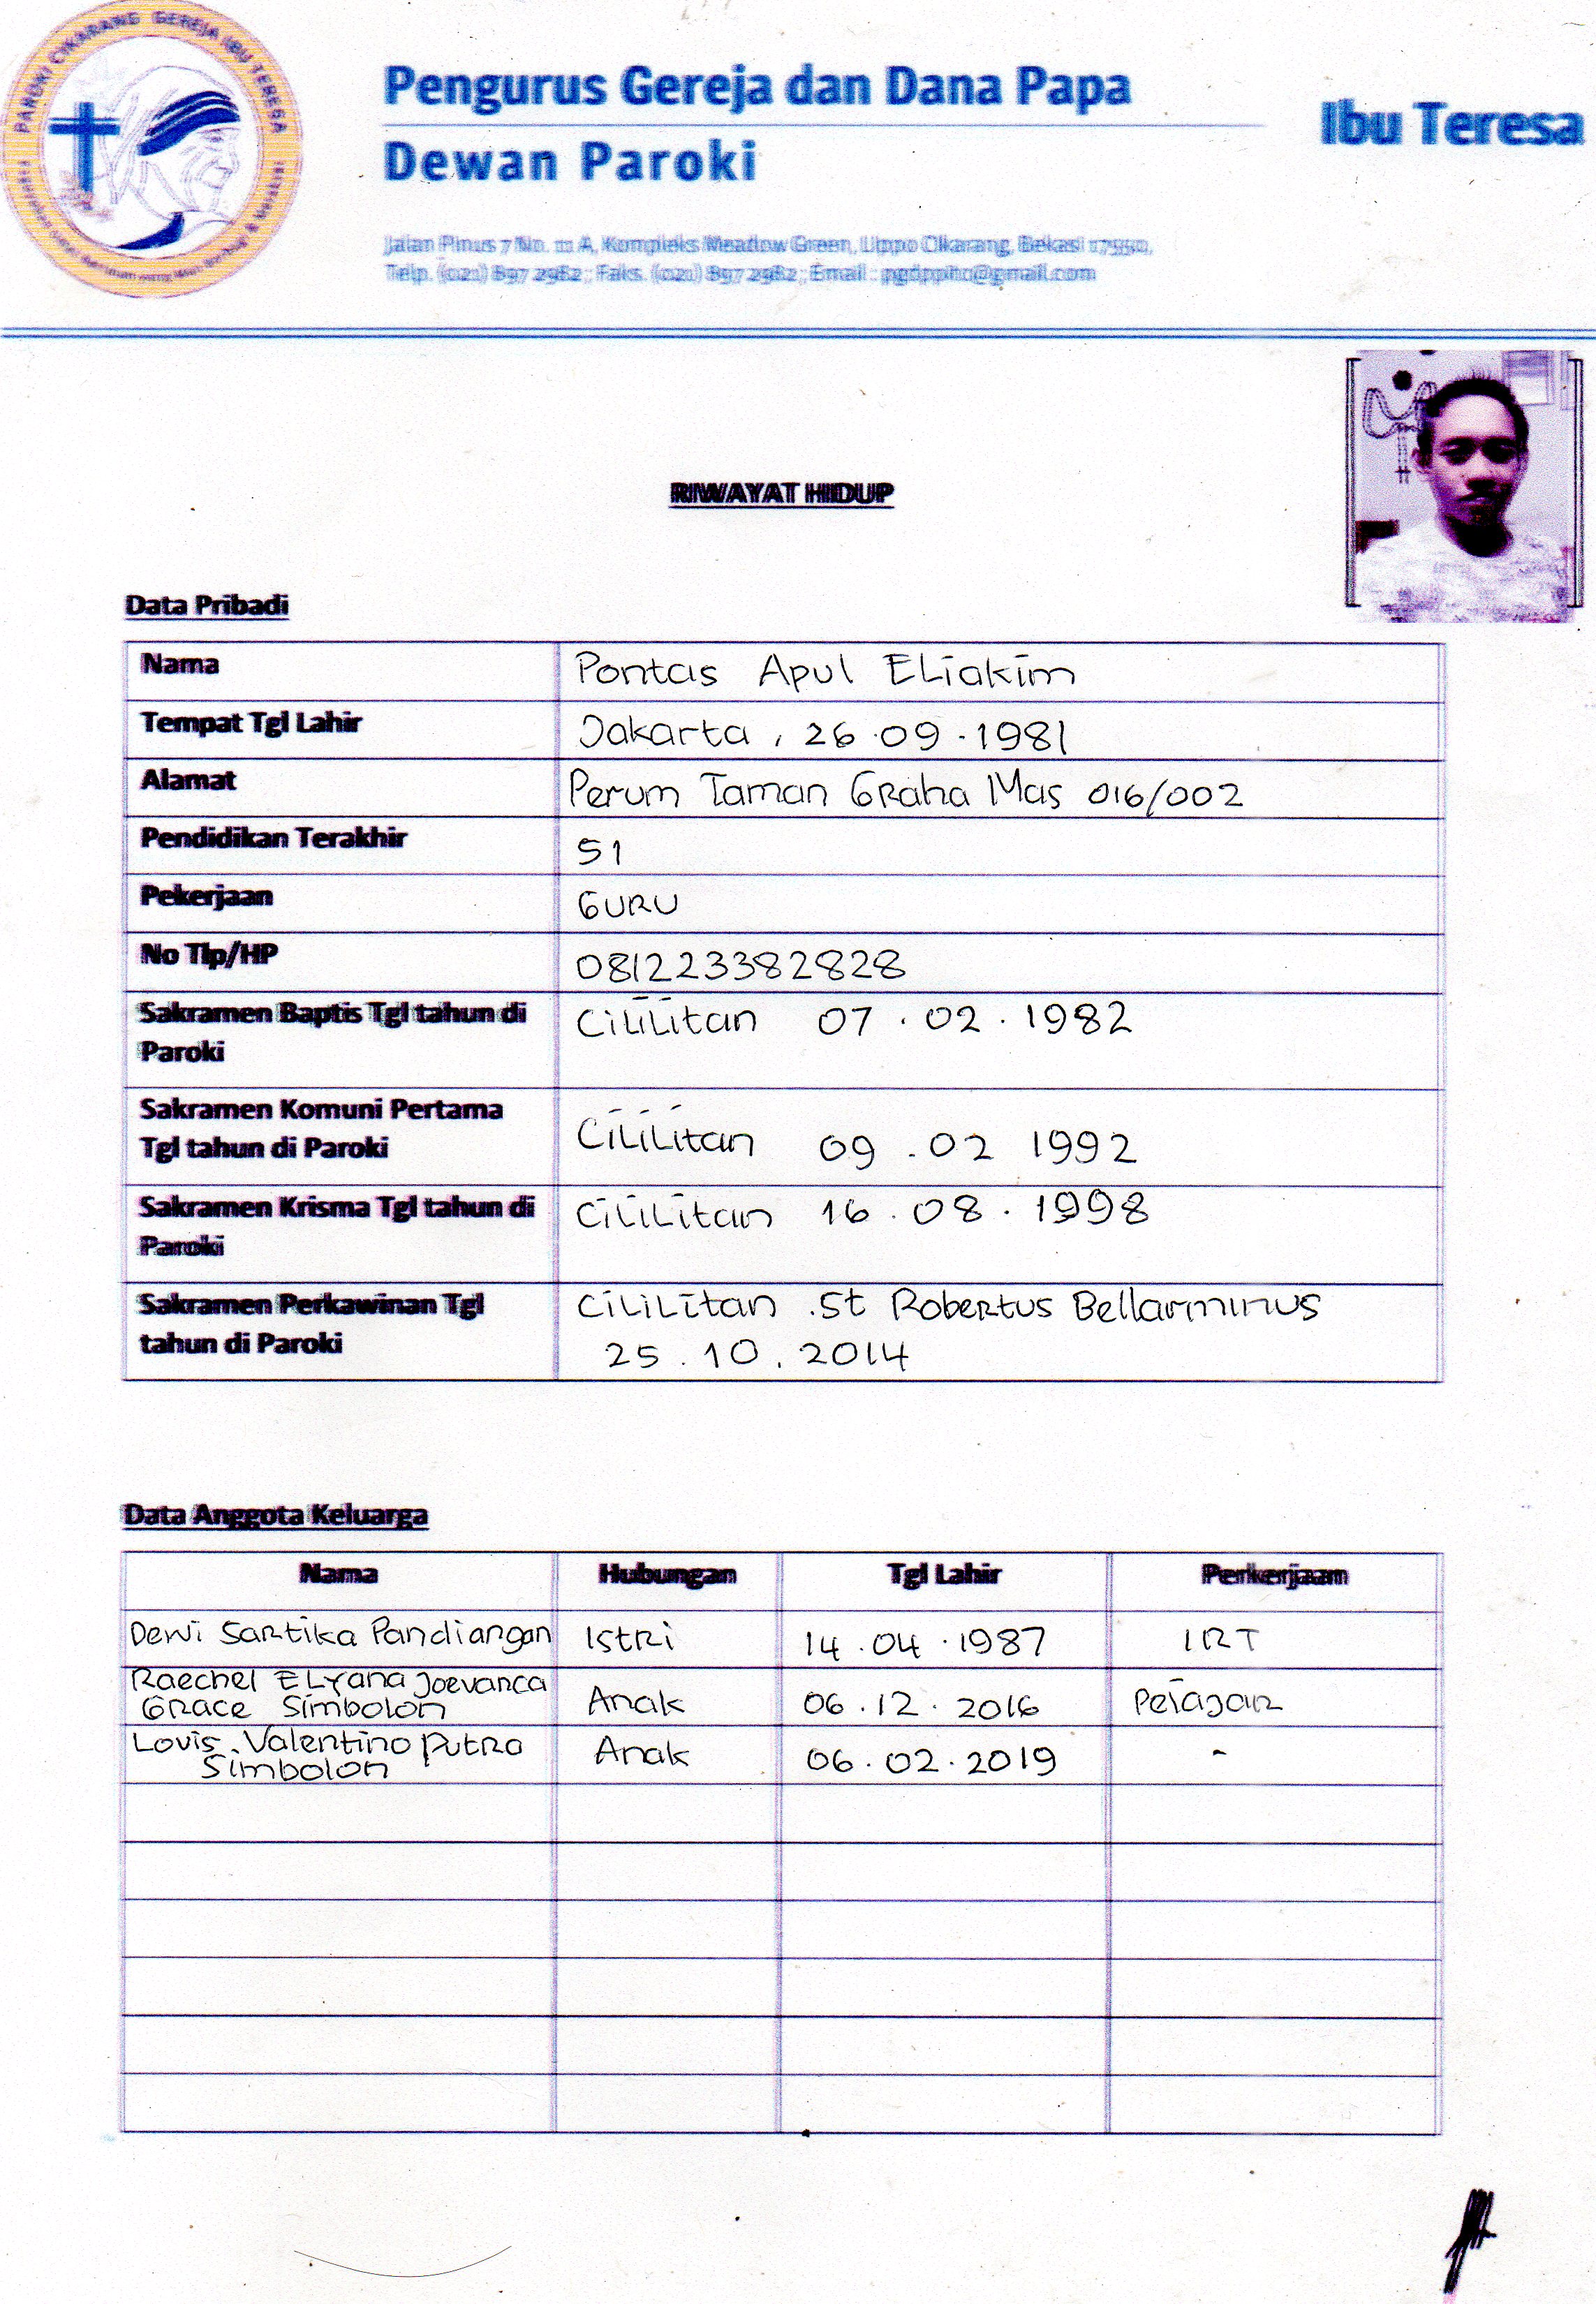 PAROKI CIKARANG GEREJA IBU TERESA
Pengurus Gereja dan Dana Papa
Ibu Teresa
Dewan Paroki
Jalan Pinus 7 No. 11 A, Kompleks Meadow Green, Lippo Cikarang, Bekasi 17550,
Telp. (021) 897 2982 ; Faks. (021) 897 2982 ; Email :
RIWAYAT HIDUP
Data Pribadi
Nama Pontas Apul ELiakim
Tempat Tgl Lahir Jakarta, 26.09.1981
Alamat Perum Taman GRaha Mas 016/002
Pendidikan Terakhir S1
Pekerjaan GURU
No Tlp/HP 081223382828
Sakramen Baptis Tgl tahun di CiLiLitan 07.02.1982
Paroki
Sakramen Komuni Pertama
Tgl tahun di Paroki CiLiLitan 09.02 1992
Sakramen Krisma Tgl tahun di CiLiLitan 16.08.1998
Paroki
Sakramen Perkawinan Tgl CiLiLitan .St RobeRtus Bellarminus
tahun di Paroki 25.10.2014
Data Anggota Keluarga
Nama Hubungan Tgl Lahir Perkerjaan
Dewi SaRtika Pandiangan IstRi 14.04.1987 IRT
Raechel ELyana Joevanca
GRace Simbolon Anak 06.12.2016 PelajaR
Lovis Valentino PutRa
Simbolon Anak 06.02.2019 -